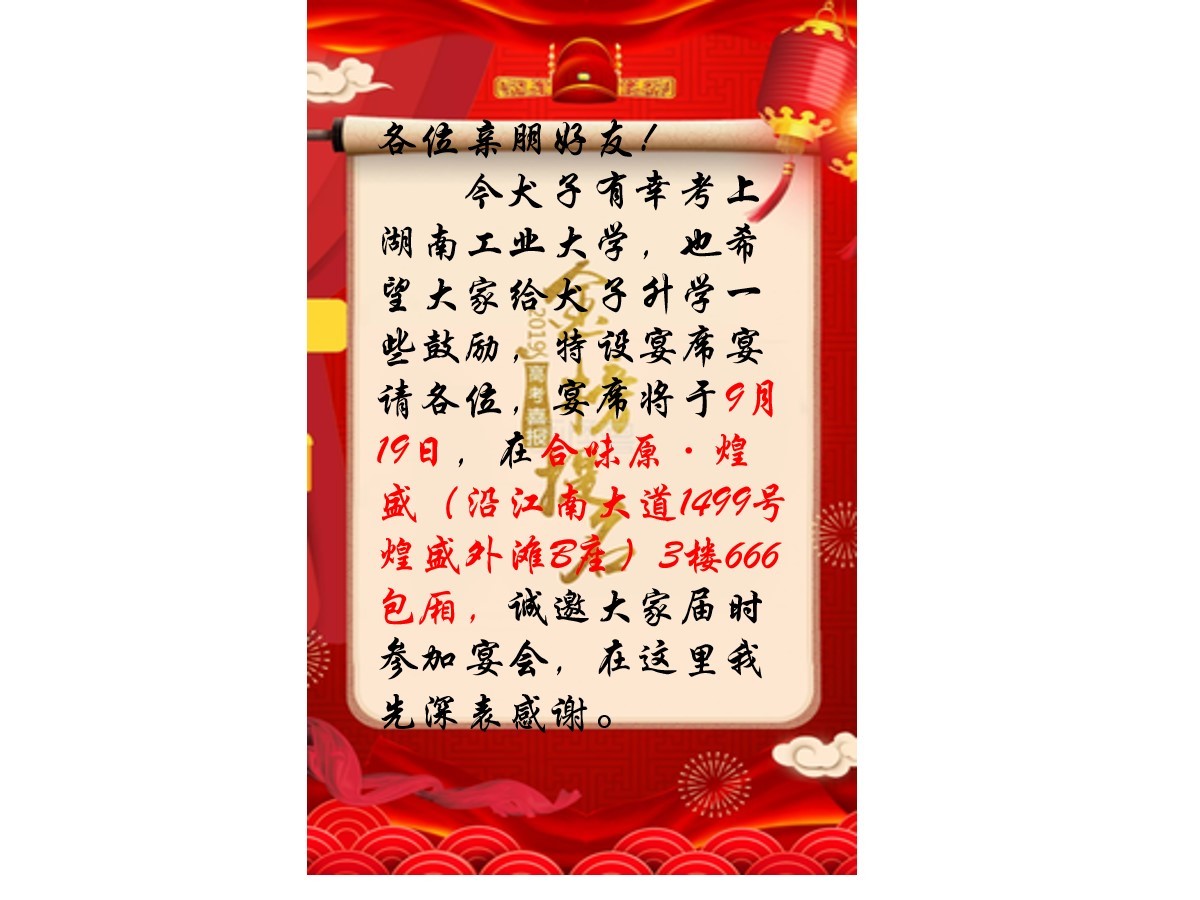 各位亲朋好友！
今犬子有幸考上
湖南工业大学，也希
望大家给犬子升学一
些鼓励，特设宴席宴
请各位，宴席将于9月
19日，在合味原·煌
盛（沿江南大道1499号
煌盛外滩B座）3楼666
包厢，诚邀大家届时
参加宴会，在这里我
先深表感谢。
金榜提名
2019
高考喜报